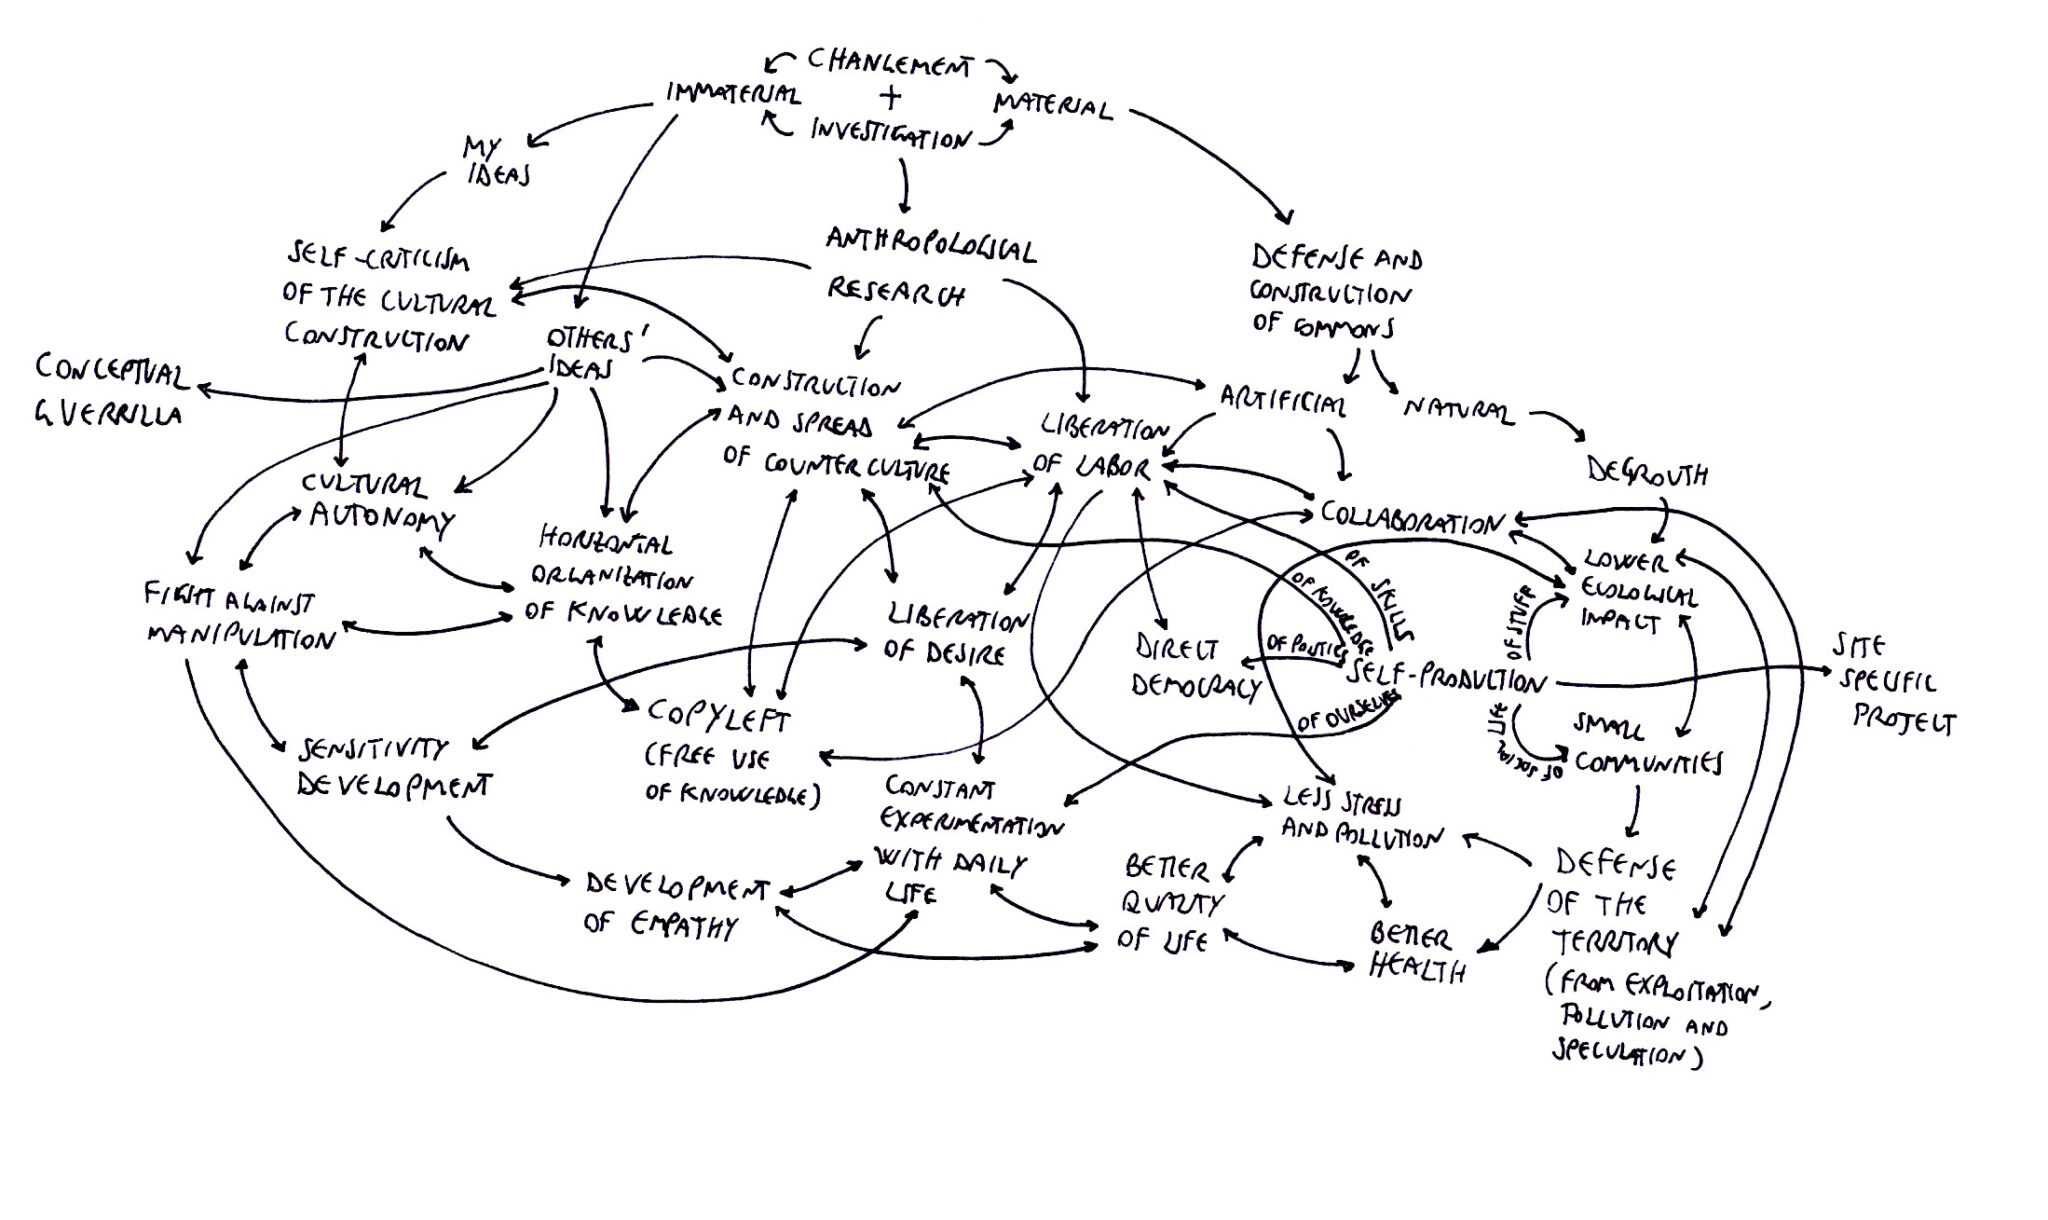 CHANGEMENT
+
INVESTIGATION
IMMATERIAL
MATERIAL
MY
IDEAS
ANTHROPOLOGICAL
RESEARCH
SELF-CRITICISM
OF THE CULTURAL
CONSTRUCTION
DEFENSE AND
CONSTRUCTION
OF COMMONS
OTHERS'
IDEAS
CONCEPTUAL
GUERRILLA
CONSTRUCTION
AND SPREAD
OF COUNTER CULTURE
LIBERATION
OF LABOR
ARTIFICIAL
NATURAL
DEGROUTH
CULTURAL
AUTONOMY
HORIZONTAL
ORGANIZATION
OF KNOWLEDGE
COLLABORATION
LOWER
ECOLOGICAL
IMPACT
FIGHT AGAINST
MANIPULATION
LIBERATION
OF DESIRE
DIRECT
DEMOCRACY
OF SKILLS
OF KNOWLEDGE
OF POLITICS
SELF-PRODUCTION
OF OURSELVES
OF STUFF
OF SOCIAL LIFE
SITE
SPECIFIC
PROJECT
SMALL
COMMUNITIES
COPYLEFT
(FREE USE
OF KNOWLEDGE)
SENSITIVITY
DEVELOPMENT
CONSTANT
EXPERIMENTATION
WITH DAILY
LIFE
LESS STRESS
AND POLLUTION
DEVELOPMENT
OF EMPATHY
BETTER
QUALITY
OF LIFE
BETTER
HEALTH
DEFENSE
OF THE
TERRITORY
(FROM EXPLOITATION,
POLLUTION AND
SPECULATION)